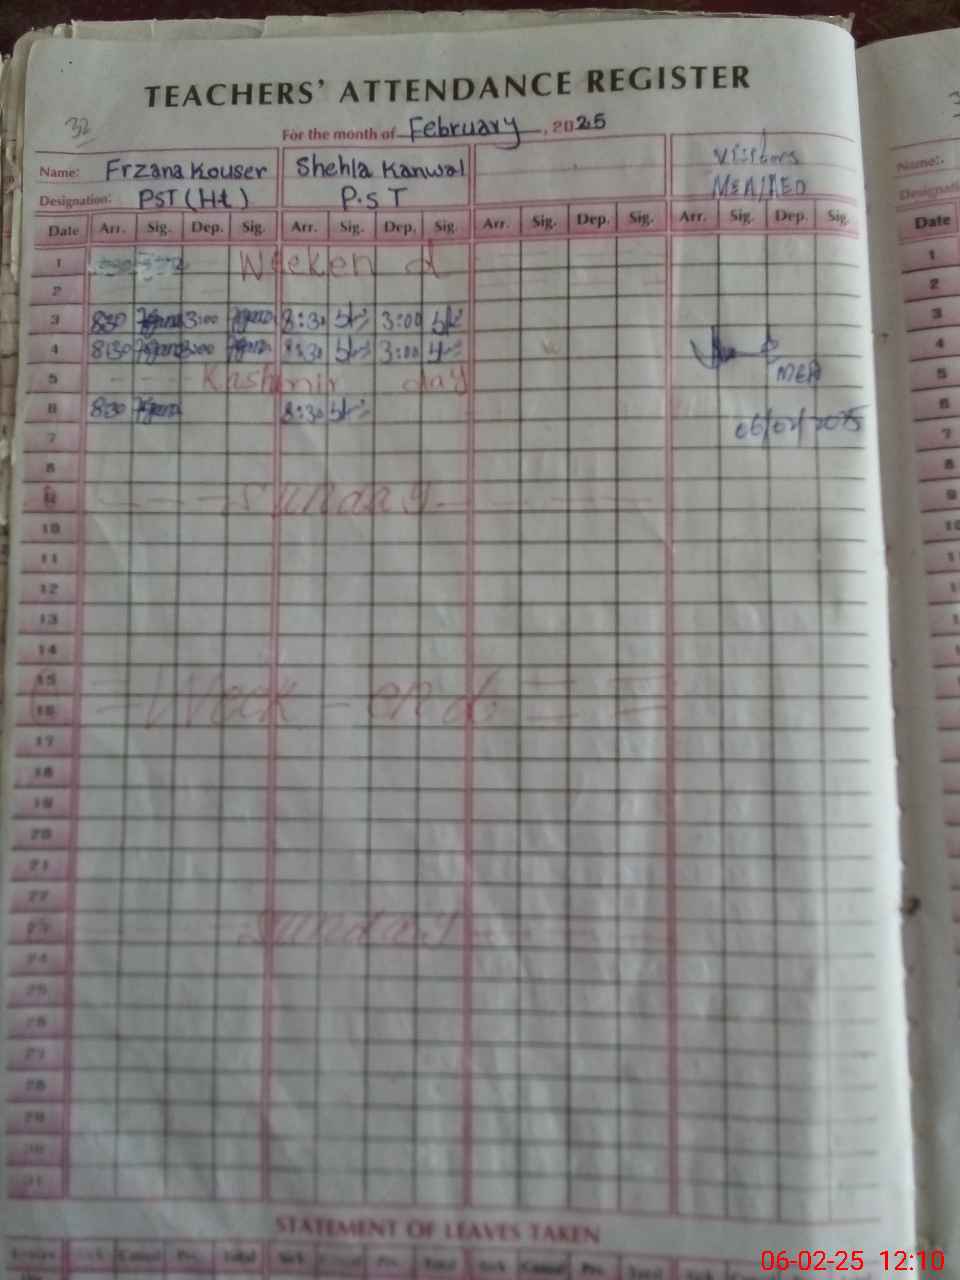 TEACHERS' ATTENDANCE REGISTER
32
For the month of February, 2025
Name: Frzana Kouser Shehla Kanwal Visitors Name:
Designation: PST (Ht) P.ST MEA/AEO
Date Arr. Sig. Dep. Sig. Arr. Sig. Dep. Sig. Arr. Sig. Dep. Sig. Arr. Sig. Dep. Sig. Date
1 Weekend 1
2 2
3 8:30 3:00 8:30 3:00 3
4 8:30 3:00 8:30 3:00 4
5 Kashmir day MEA 5
6 8:30 8:30 6
7 06/02/2025 7
8 8
9 Sunday 9
10 10
11
12
13
14
15
16 Week-end
17
18
19
20
21
22
23 Sunday
24
25
26
27
28
29
30
31
STATEMENT OF LEAVES TAKEN
Sick Casual Prv. Total Sick Casual Prv. Total Sick Casual Prv. Total Sick
06-02-25 12:10